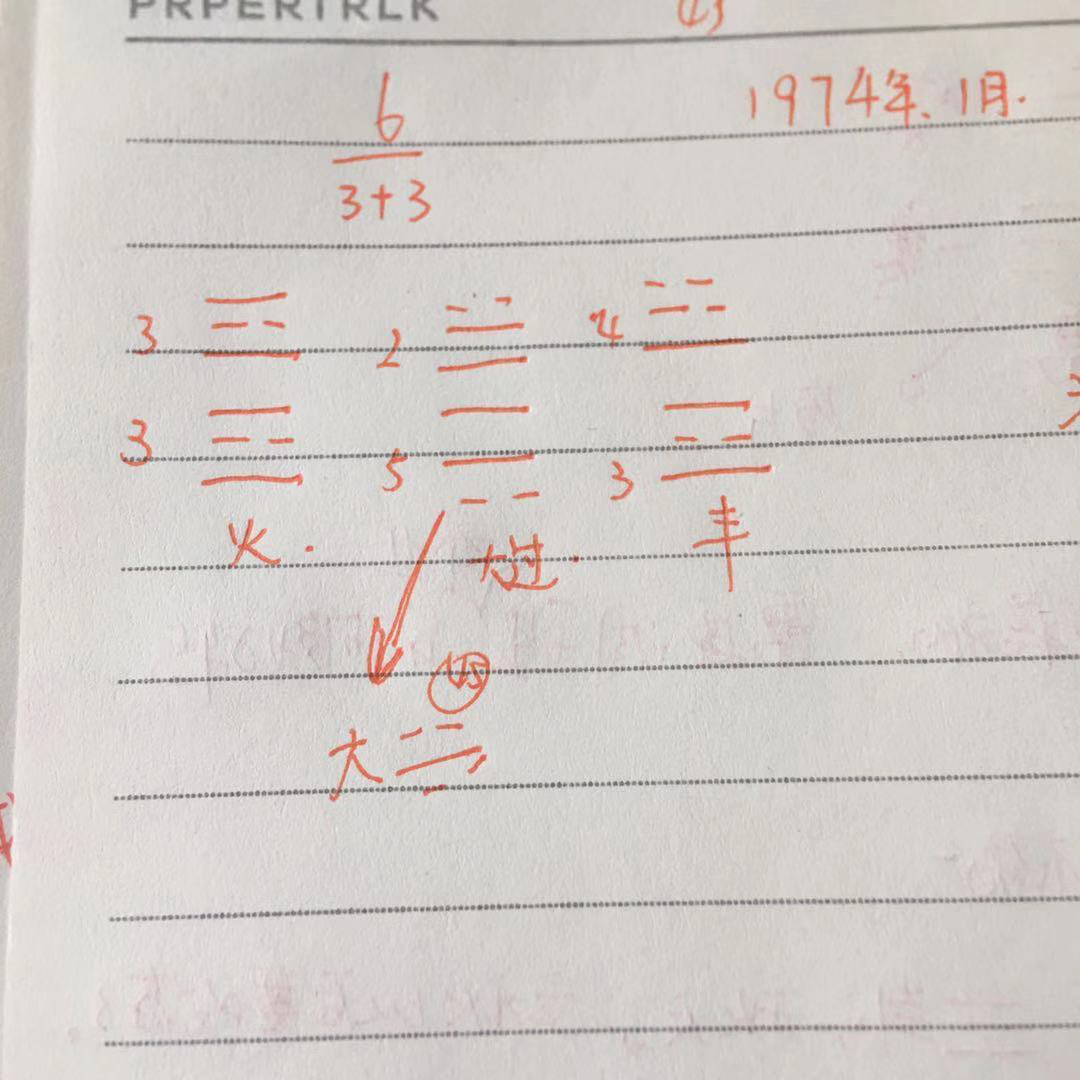 PRPERTRLK
6
3+3
1974年.1月.
3 2 4
3 5 3
火. 大过. 丰
大